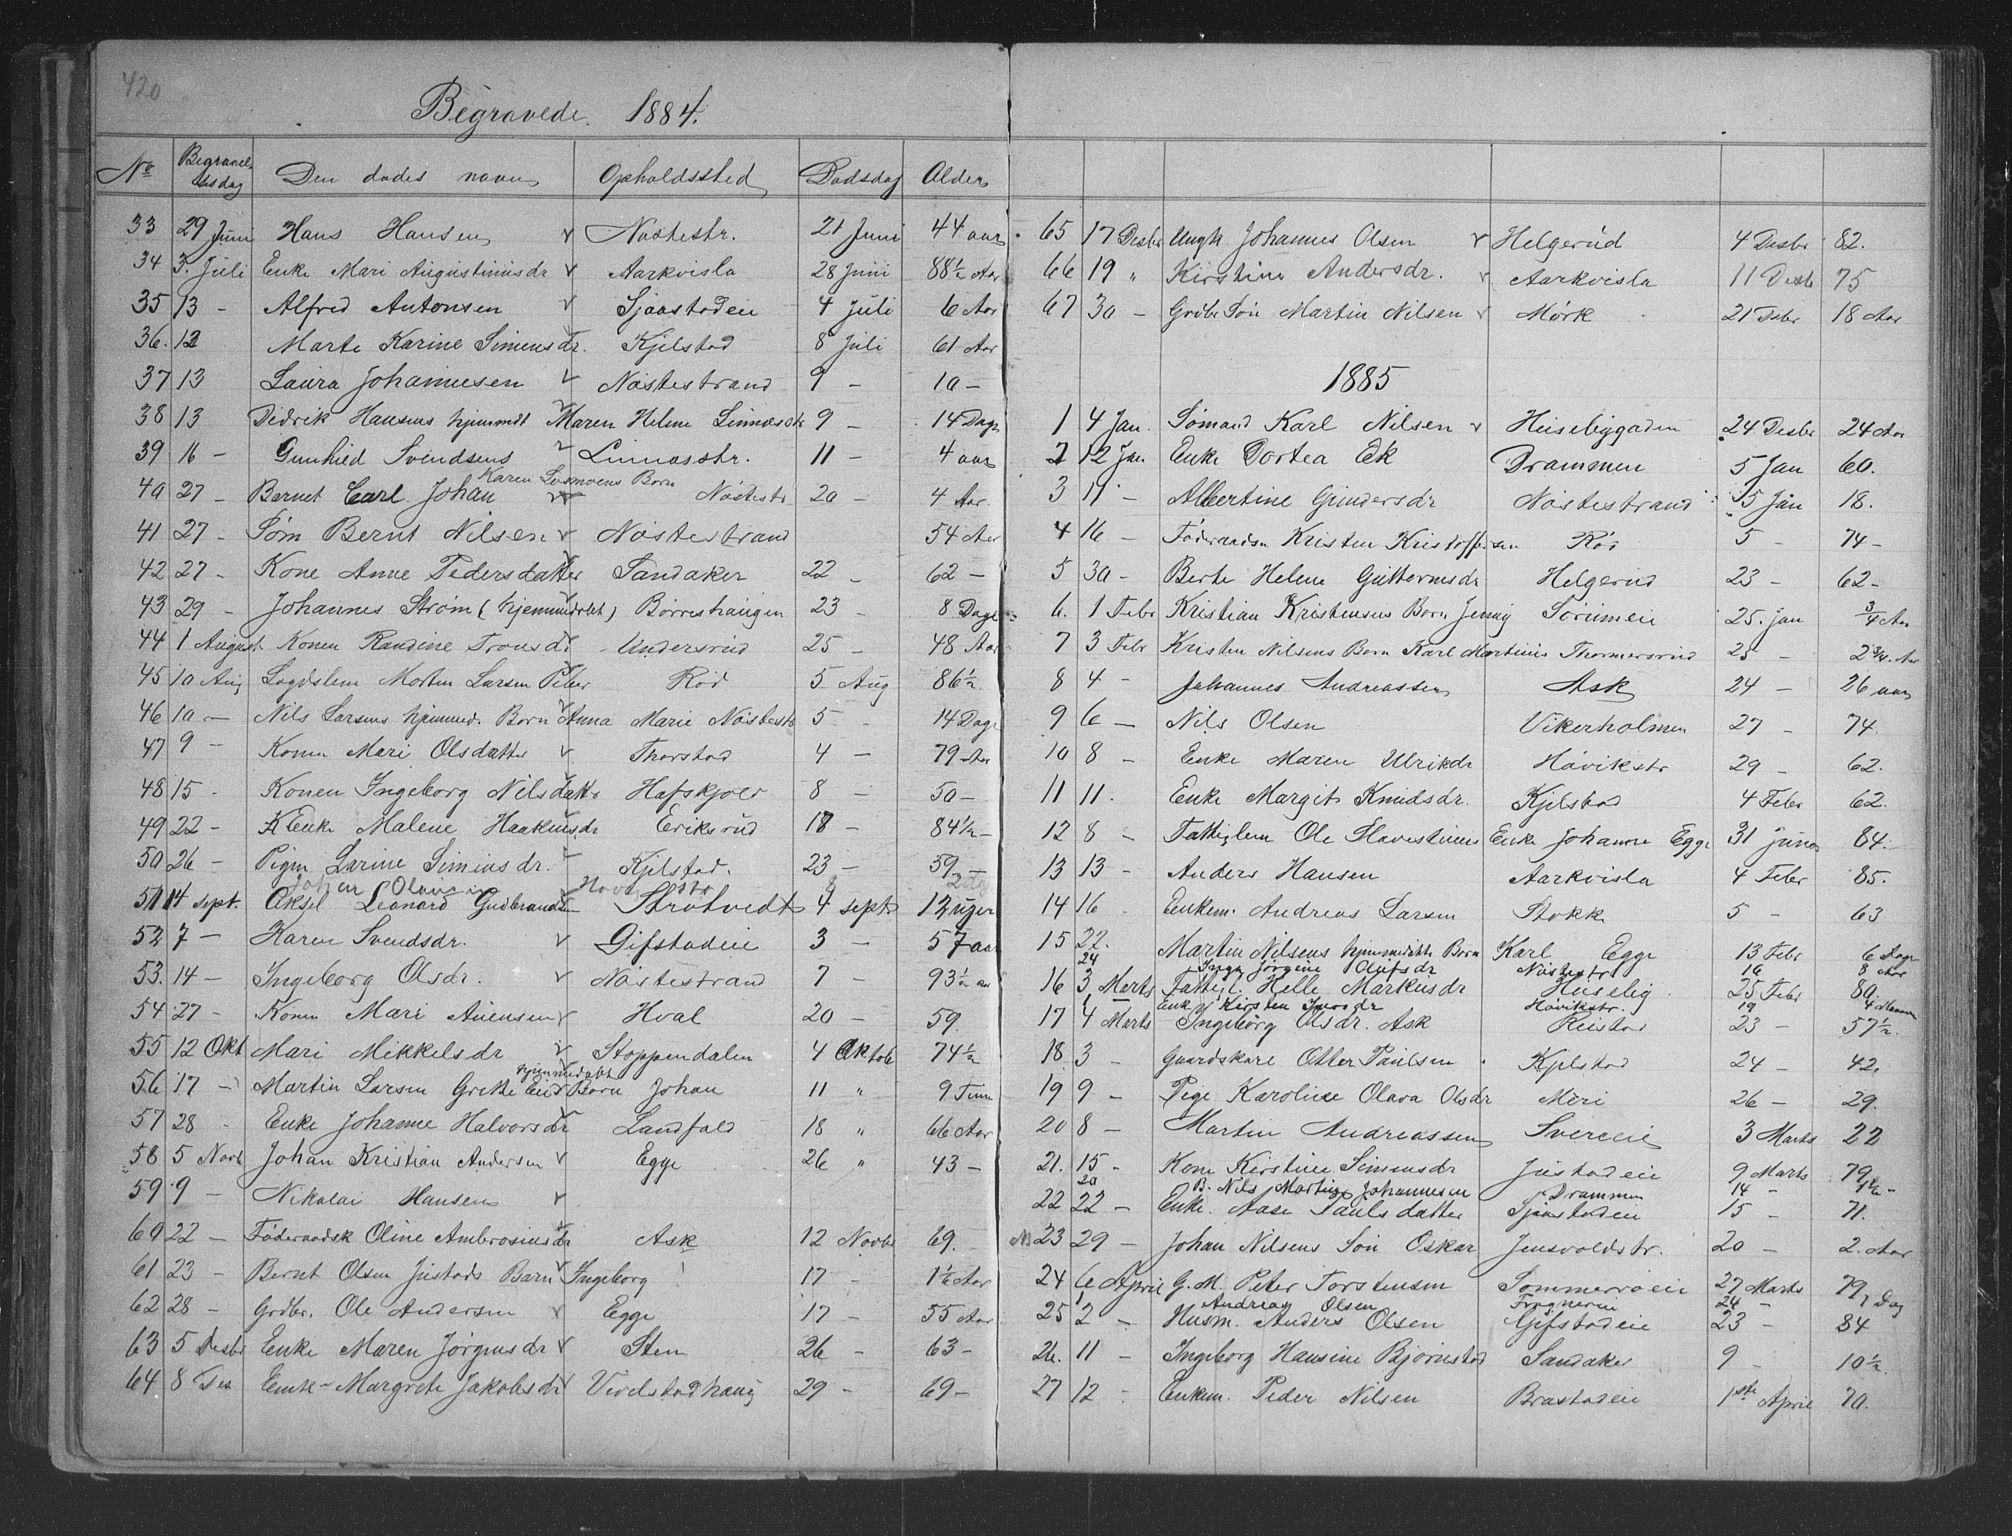 420
Begravede 1884.
No Begravelsesdag Den dødes navn Opholdssted Dødsdag Alder
33 29 Juni Hans Hansen v Nøstestr. 21 Juni 44 aar
34 3. Juli Enke Mari Augustinusdr v Aarkvisla 28 Juni 88½ Aar
35 13 - Alfred Antonsen v Sjaastadeie 4 Juli 6 Aar
36. 12 Marte Karine Simensdr. Kjelstad 8 Juli 61 Aar
37 13 Laura Johannesen v Nøstestrand 9 - 10 -
38 13 Didrik Hansens hjemmdt Maren Helene Linnesstr 9 - 14 Dage
39 16 - Gunhild Svendsens v Linnesstr. 11 - 4 aar
Karen Born
40 27 - Barnet Carl Johan v Nøstestr 20 - 4 Aar
41 27 - Søm Bernt Nilsen v Nøstestrand 54 Aar
42 27 - Kone Anne Pedersdatter Sandaker 22 - 62 -
43 29 - Johannes Strøm (hjemmedøbt) Børreshaugen 23 - 8 Dage
44 1 August Konen Randine Tronsdr - Undersrud 25 - 48 Aar
45 10 Aug Lægdslem Morten Larsen Peter Rød 5 Aug 86½
46 10 - Nils Larsens hjemmed. Born Anna Marie Nøstestr 5 - 14 Dage
47 9 - Konen Mari Olsdatter v Thorstad 4 - 79 Aar
48 15 - Konen Ingeborg Nilsdatter Hafskjold 8 - 50 -
49 22 - Enke Malene Haakensdr Eriksrud 18 - 84½ -
50 26 - Pigen Larine Simensdr. Kjelstad. 23 - 59 -
Johan Olaves
51 14 Sept. Aksel Leonard Gudbrandsen Strøtvedt 4 Sept 12 uger
52 7 - Karen Svendsdr. v Gifstadeie 3 - 57 aar
53. 14 - Ingeborg Olsdr. v Nøstestrand 7 - 93½ aar
54 27 - Konen Mari Auensen v Hval 20 - 59.
55 12 Okt Mari Mikkelsdr v Stoppendalen 4 Oktob 74½
hjemmedøbt
56 17 - Martin Larsen Grette Eies Born Johan 11 " 9 Timer
57 28 - Enke Johanne Halvorsdr Landfald 18 " 66 Aar
58 5 Novb Johan Kristian Andersen v Egge 26 " 43 -
59 9 - Nikolai Hansen v
60 22 - Føderaadsk Oline Ambrosiusdr Ask 12 Novbr 69.
61 23 - Bernt Olsen Justads Barn Ingeborg 17 - 1½ Aar
62 28 - Grdbr. Ole Andersen v Egge 17 - 55 Aar
63 5 Desbr Enke Maren Jørgensdr v Sten 26 - 63 -
64 8 Des Enke Margrete Jakobsdr v Vivelstadhaug 29 - 69 -
65 17 Desbr Ungk Johannes Olsen v Helgerud 4 Desbr 82.
66 19 " Kirstine Andersdr. v Aarkvisla 11 Desb 75
67 30 - Grdbr Søn Martin Nilsen v Mørk 21 Desbr 18 Aar
1885
1 4 Jan. Sømand Karl Nilsen v Husebygaden 24 Desbr 24 Aar
2 12 Jan Enke Dortea Ek Drammen 5 Jan 60.
3 11 - Albertine Gundersdr Nøstestrand 5 Jan 18.
4 16 - Føderaadsm Kristen Kristoffersen Rød 5 - 74 -
5 30 - Berte Helene Guttormsdr Helgerud 23 - 62 -
6. 1 Febr Kristian Kristensens Born Jenny Sørumeie 25. Jan ¾ Aar
7 3 Febr Kristen Nilsens Born Karl Martinius Thormersrud 25 - 2¾ Aar
8 4 - Johannes Andreassen Ask 24 - 26 aar
9 6 - Nils Olsen Vikerholmen 27 - 74.
10 8 - Enke Maren Ulrikdr Høvikstr 29 - 62.
11 11. Enke Margit Knudsdr. Kjelstad 4 Febr 62.
12 8 - Fattiglem Ole Slavestuens Enke Johanne Egge 31 Januar 84.
13 13 - Anders Hansen Aarkvisla 4 Febr 85.
14 16 - Enkem. Andreas Larsen Stokk 5 - 63
15 22. Martin Nilsens hjemmedøbte Born Karl Egge 13 Febr 6 Dage
24 Inga Jørgine Olufsdr Nøstestr 16 8 Aar
16 3 Marts Fattigl. Helle Markusdr Huseby 25 Febr 80.
1 Enke Kirsten Iversdr Høvikstr. 19 4 Maaneder
17 4 Marts Ingeborg Olsdr. Ask Reistad 23 - 57½.
18 3 - Gaardskare Otter Paulsen Kjelstad 24 - 42.
19 9 - Pige Karoline Olava Olsdr Meri 26 - 29.
20 8 - Marten Andreassen Svereeie 3 Marts 22
21. 15 - Kone Kirstine Simensdr Justadeie 9 Marts 79
20 B. Nils Martin Johannesen Drammen 14 - 1½ -
22 22 - Enke. Aase Paulsdatter Sjaastadeie 15 - 71.
N. 23 29 - Johan Nilsens Søn Oskar Jensvoldstr. 20 - 2. Aar
24 6 April G. M. Peter Torstensen Sommerroeie 27 Marts 79
1 Andreas Olsen Frognereie 24 - 1 Dag
25 2 - Husm. Anders Olsen Gifstadeie 23 - 84
26. 11 - Ingeborg Hansine Bjørnstad Sandaker 9 - 10½
27 12 - Enkem. Peder Nilsen Brastadeie 1ste April 70.